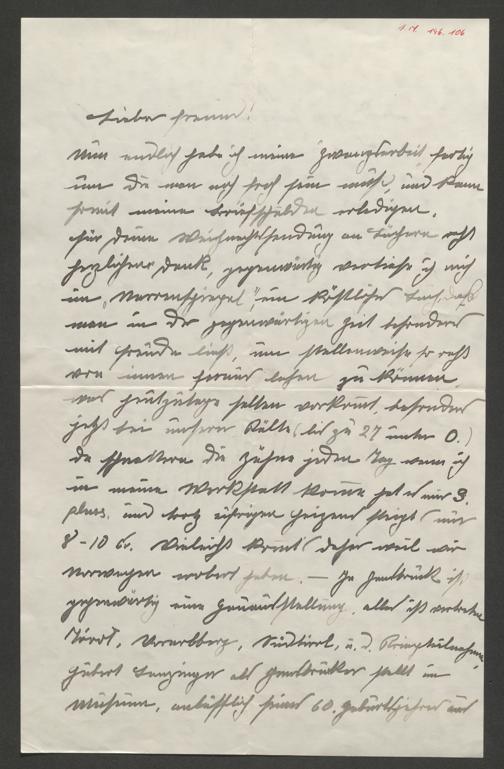 I.N. 196.106
Lieber Freund!
Nun endlich habe ich meine Zwangsarbeit fertig
um die man noch froh sein müßte, und kann
somit meine Briefschulden erledigen.
Für Deine Weihnachtssendung an Büchern recht
herzlichen Dank, gegenwärtig vertiefe ich mich
im „Narrenspiegel", ein köstliches Buch, daß
man in der gegenwärtigen Zeit besonders
mit Freude ließt, um stellenweise so recht
von innen heraus lachen zu können,
was heutzutage selten vorkomt, besonders
jetzt bei unserer Kälte (bis zu 27 unter 0.)
da schnattern die Zähne jeden Tag wenn ich
in meine Werkstatt komme hat es nur 3.
plus. und trotz eifrigen heizens steigts nur
8-10 Gr. Vieleicht komt daher weil wir
Norwegen erobert haben. — In Innsbruck ist
gegenwärtig eine Gauausstellung, alles ist vertreten
Tirol, Vorarlberg, Südtirol, u. d. Kriegsteilnehmer,
Hubert Lanzinger als Innsbrucker stellt im
Museum, anläßlich seines 60. Geburtsjahres aus